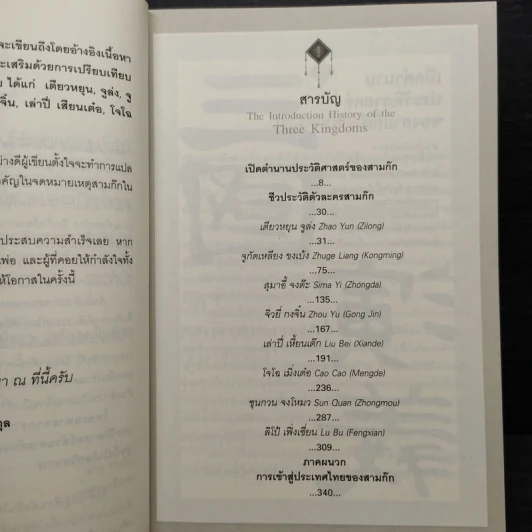 จะเขียนถึงโดยอ้างอิงเนื้อหา
ะเสริมด้วยการเปรียบเทียบ
ได้แก่ เตียวหยุน จูล่ง, จู
จิ้น, เล่าปี่ เสียนเต๋อ, โจโฉ
งดีผู้เขียนตั้งใจจะทำการแปล
คัญในจดหมายเหตุสามก๊กใน
ประสบความสำเร็จเลย หาก
พ่อ และผู้ที่คอยให้กำลังใจทั้ง
ห้โอกาสในครั้งนี้
ณ ที่นี้ครับ
กุล
สารบัญ
The Introduction History of the
Three Kingdoms
เปิดตำนานประวัติศาสตร์ของสามก๊ก
...8...
ชีวประวัติตัวละครสามก๊ก
...30...
เตียวหยุน จูล่ง Zhao Yun (Zilong)
...31...
จูกัดเหลียง ขงเบ้ง Zhuge Liang (Kongming)
...75...
สุมาอี้ จงต๊ะ Sima Yi (Zhongda)
...135...
จิวยี่ กงจิ้น Zhou Yu (Gong Jin)
...167...
เล่าปี่ เหี้ยนเต๊ก Liu Bei (Xiande)
...191...
โจโฉ เมิ่งเต๋อ Cao Cao (Mengde)
...236...
ซุนกวน จงโหมว Sun Quan (Zhongmou)
...287...
ลิโป้ เฟิ่งเซียน Lu Bu (Fengxian)
...309...
ภาคผนวก
การเข้าสู่ประเทศไทยของสามก๊ก
...340...